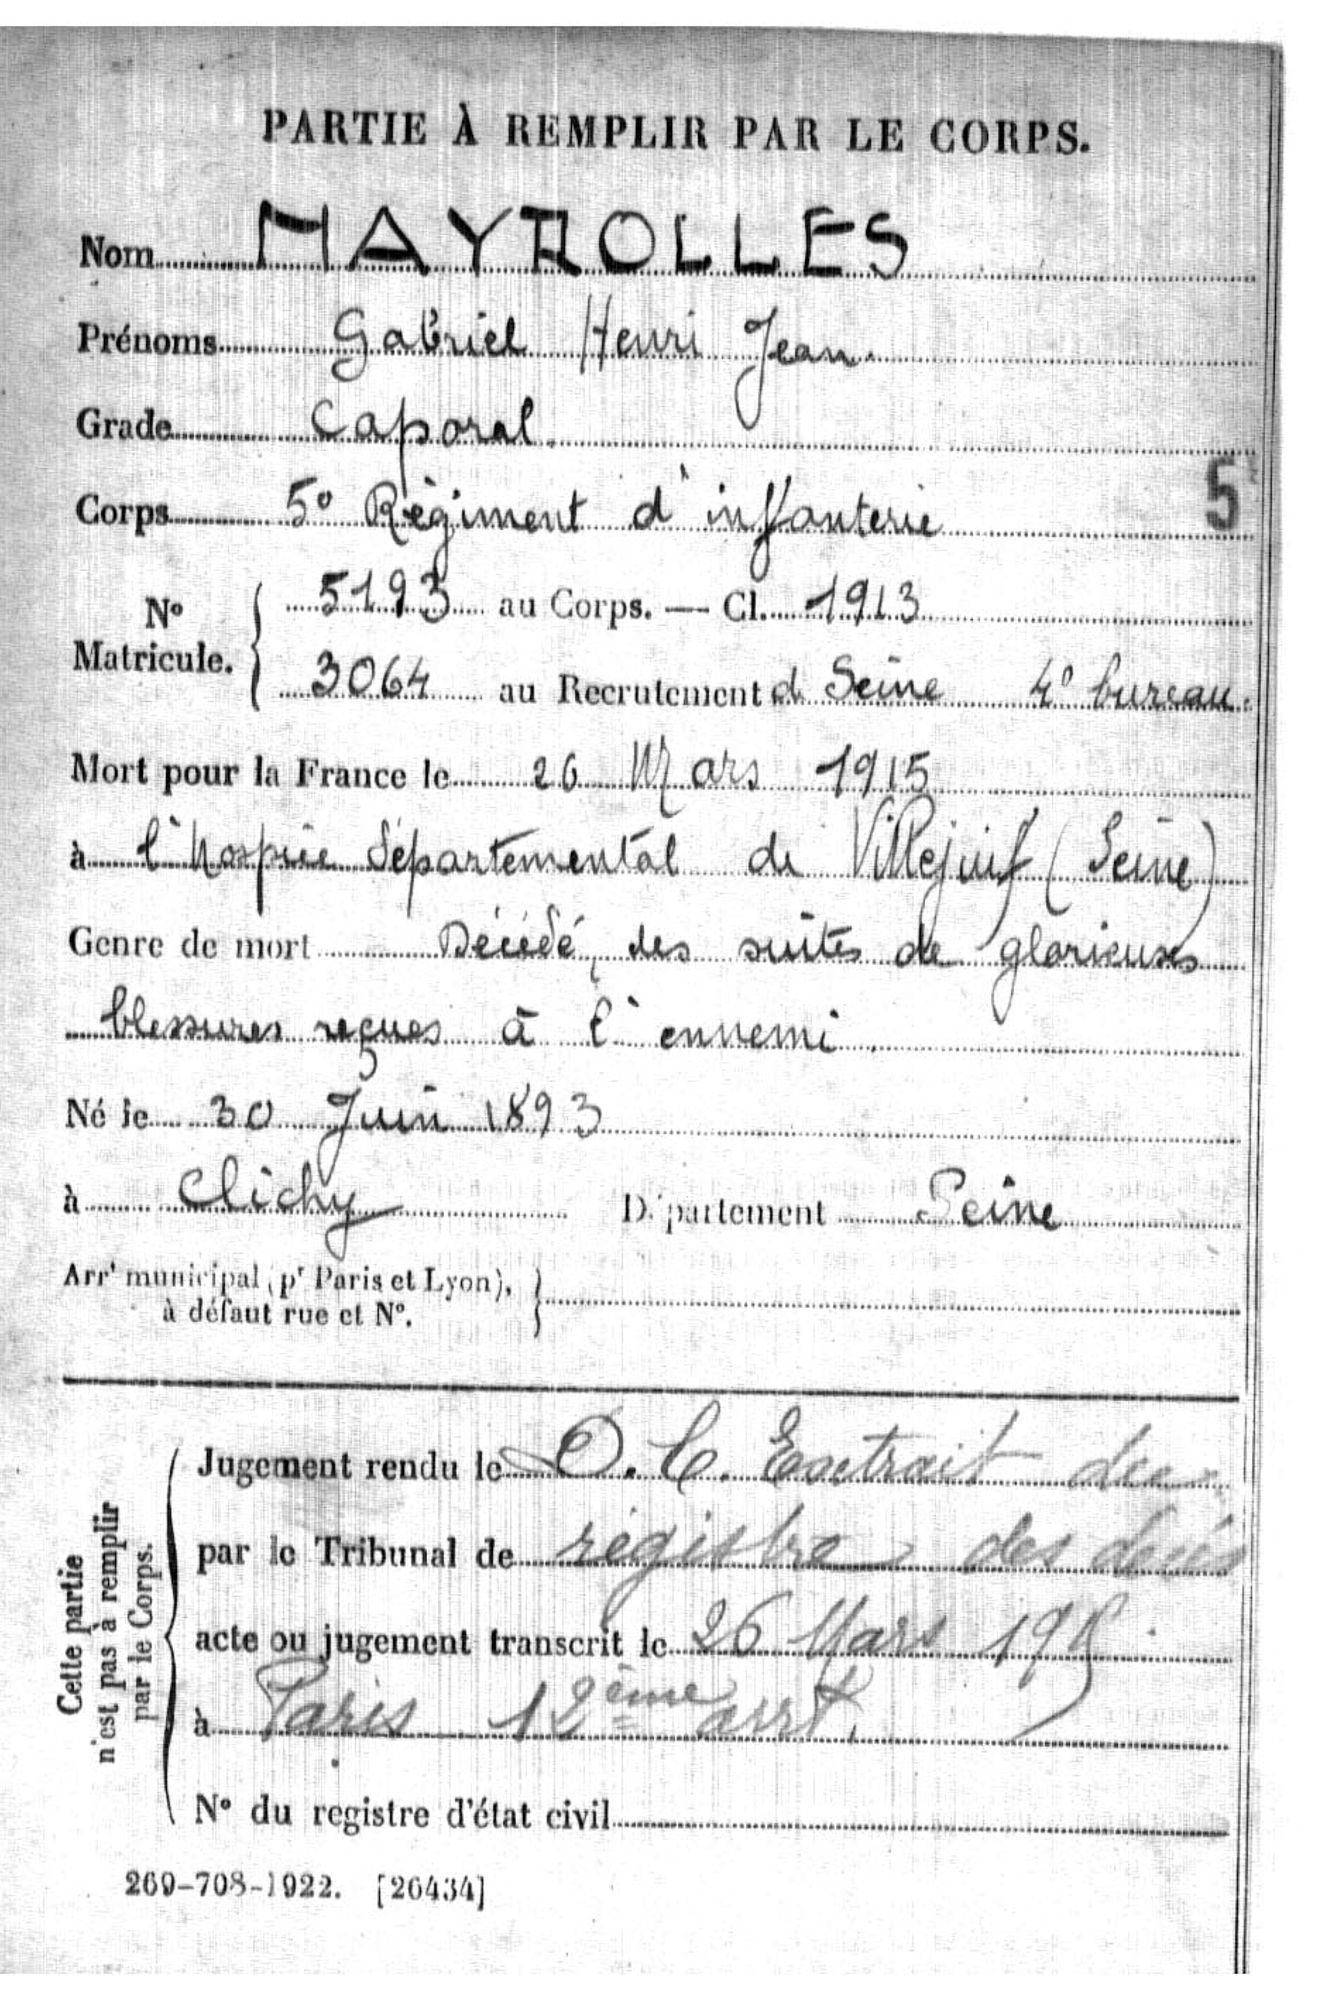 PARTIE À REMPLIR PAR LE CORPS.
Nom MAYROLLES
Prénoms Gabriel Henri Jean.
Grade Caporal.
Corps 5e Régiment d'infanterie 5
No Matricule. { 5193 au Corps. — Cl. 1913
3064 au Recrutement d Seine 4e bureau.
Mort pour la France le 26 Mars 1915
à l'hospice départemental de Villejuif (Seine)
Genre de mort Décédé, des suites de glorieuses
blessures reçues à l'ennemi.
Né le 30 Juin 1893
à Clichy Département Seine
Arrt municipal (pr Paris et Lyon), à défaut rue et No. }
Cette partie n'est pas à remplir par le Corps. {
Jugement rendu le D.C. Extrait du
par le Tribunal de registre des décès
acte ou jugement transcrit le 26 Mars 1915.
à Paris 12ème arrt.
No du registre d'état civil
269-708-1922. [26434]